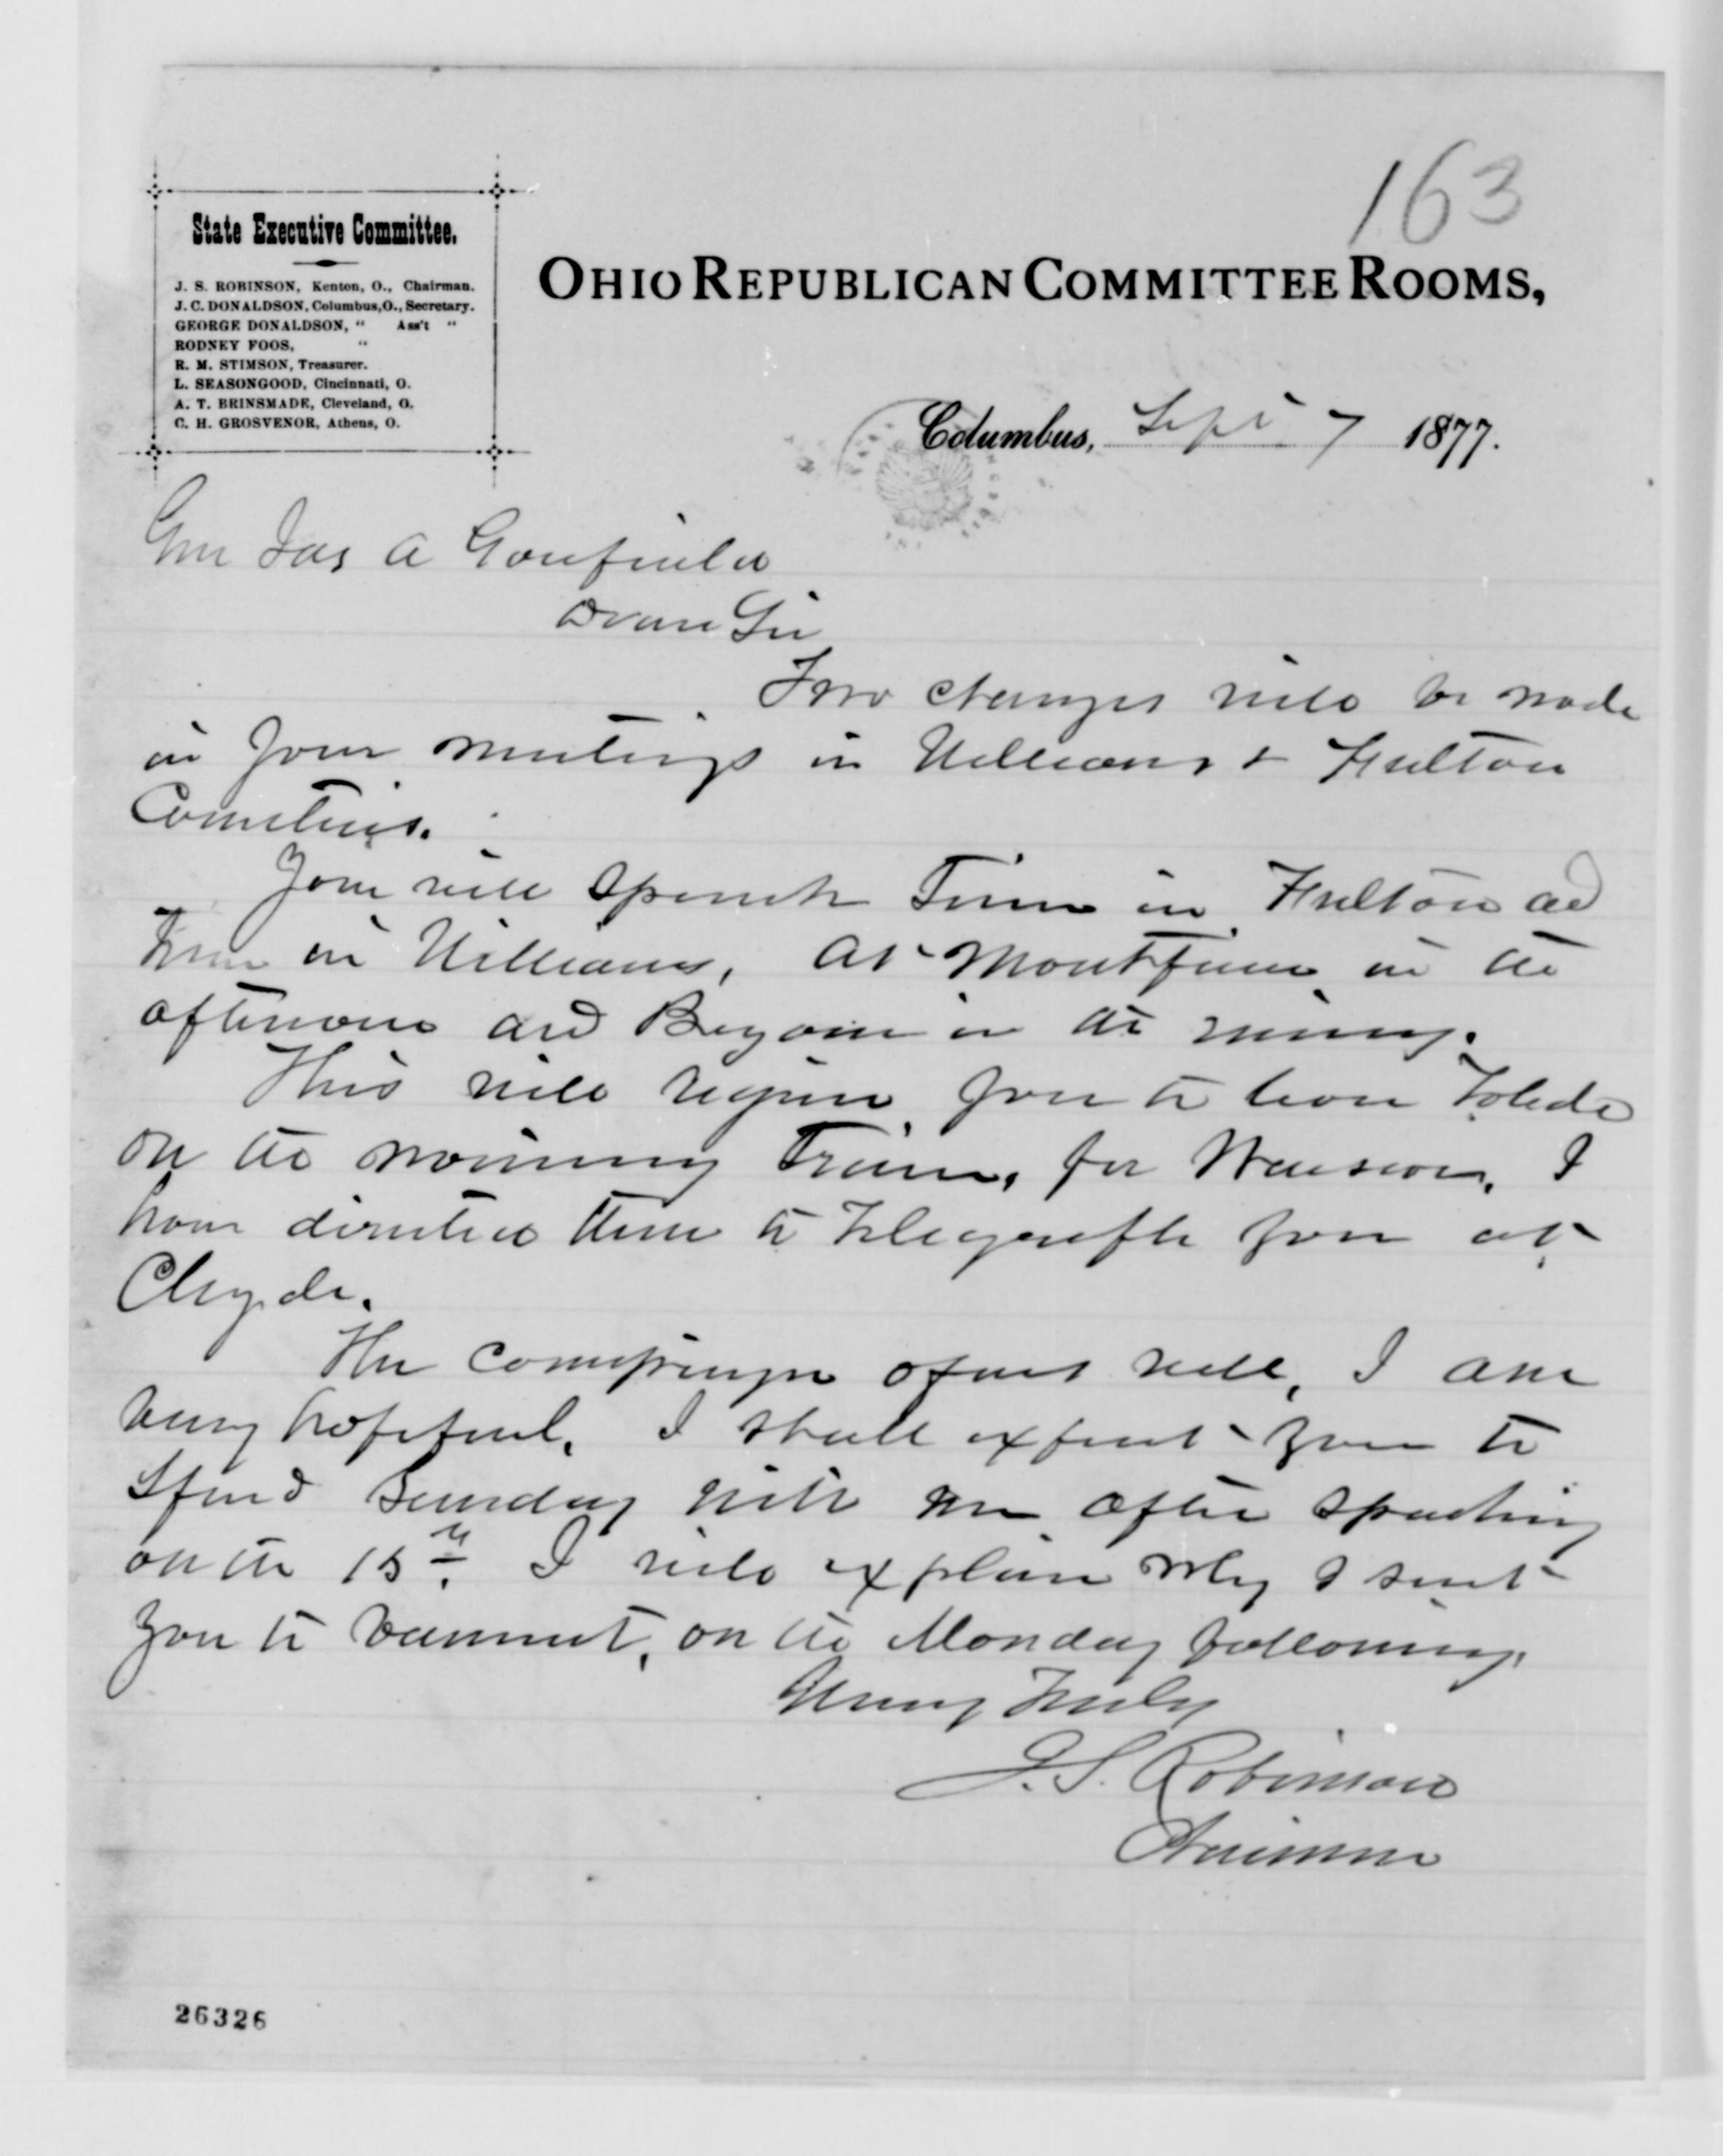 163
State Executive Committee.
J. S. ROBINSON, Kenton, O., Chairman.
J. C. DONALDSON, Columbus, O., Secretary.
GEORGE DONALDSON, " Ass't "
RODNEY FOOS, "
R. M. STIMSON, Treasurer.
L. SEASONGOOD, Cincinnati, O.
A. T. BRINSMADE, Cleveland, O.
C. H. GROSVENOR, Athens, O.
OHIO REPUBLICAN COMMITTEE ROOMS,
Columbus, Sept 7 1877.
Gen Jas A Garfield
Dear Sir
Two changes will be made
in your meetings in Williams & Fulton
Counties.
You will speak in Fulton and
in Williams, At Montpelier in the
afternoon and Bryan in the evening.
This will require you to leave Toledo
on the morning Train, for Wauseon, I
have directed them to Telegraph you at
Clyde.
The Campaign opens well, I am
very hopeful. I shall expect you to
spend Sunday with me after speaking
on the 15th. I will explain why I sent
you to on the Monday following.
Very Truly
J. S. Robinson
Chairman
26326